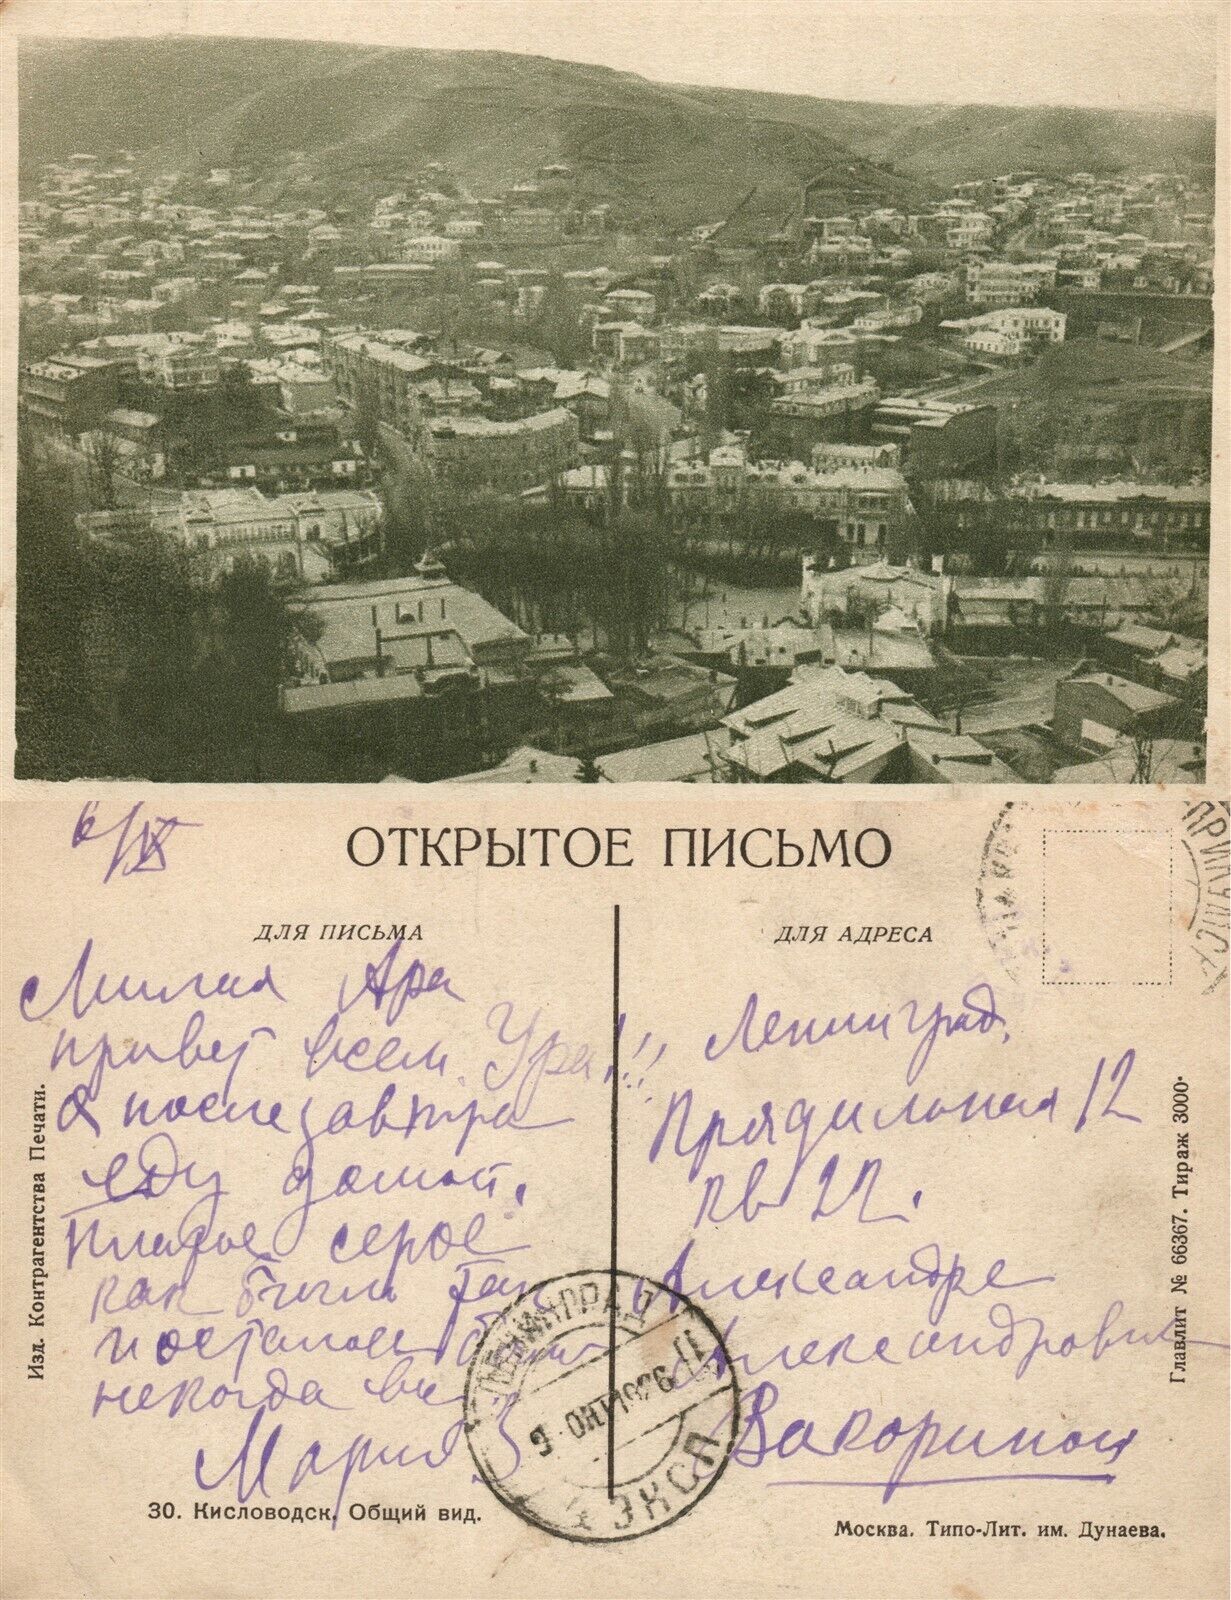 6/IX
ОТКРЫТОЕ ПИСЬМО
ДЛЯ ПИСЬМА
Милая Ара
привет всем. Ура!!!
послезавтра
еду домой.
Платье серое
как было так
и осталось
некогда
Мария
30. Кисловодск. Общий вид.
Изд. Контрагентства Печати.
ДЛЯ АДРЕСА
Ленинград,
Прядильная 12
кв 22.
Александре
Александровне
Вакориной
Москва. Типо-Лит. им. Дунаева.
Главлит № 66367. Тираж 3000.
ЛЕНИНГРАД
9 ОКТ 1926
ЭКСП